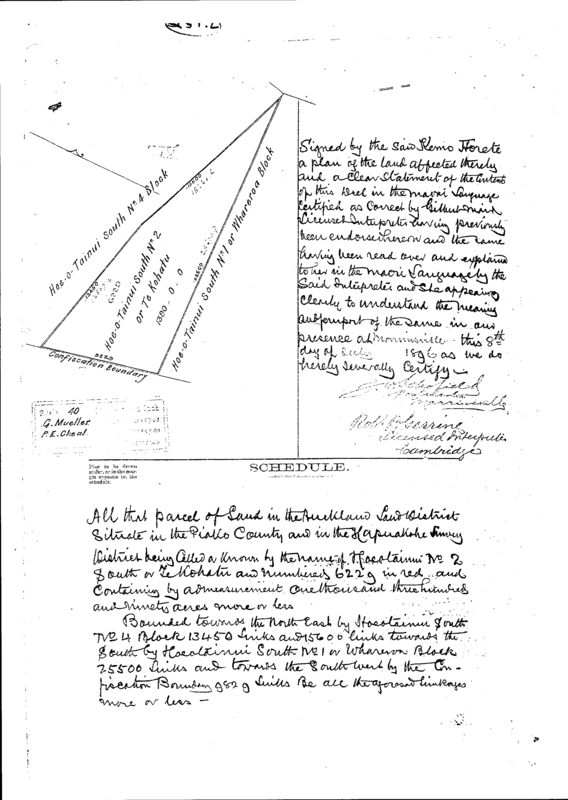 Hoe-o-Tainui South Nº 4 Block
Hoe-o-Tainui South Nº 2
or Te Kohatu
1390 . 0 . 0
Hoe-o-Tainui South Nº 1 or Whareroa Block
Confiscation Boundary
40
G. Mueller
P. E. Cheal.
Signed by the said Horete
a plan of the land affected thereby
and a Clear Statement of the Contents
of this Deed in the maori Language
Certified as Correct by Gilbert Mair
Licensed Interpreter having previously
been endorsed hereon and the same
having been read over and explained
to her in the maori Language by the
Said Interpreter and She appearing
Clearly to understand the meaning
and purport of the same in our
presence at Morrinsville this 8th
day of July 1896 as we do
hereby Severally Certify —
Morrinsville
Licensed Interpreter
Cambridge
Plan to be drawn
under, or in the mar-
gin opposite to, the
schedule.
SCHEDULE.
All that parcel of Land in the Auckland Land District
Situate in the Piako County and in the Hapuakohe Survey
District being Called or Known by the name of Hoeotainui Nº 2
South or Te Kohatu and numbered 6229 in red and
Containing by admeasurement One thousand three hundred
and ninety acres more or less
Bounded towards the North East by Hoeotainui South
Nº 4 Block 13450 links and 15600 links towards the
South by Hoeotainui South Nº 1 or Whareroa Block
25500 links and towards the South West by the Con-
fiscation Boundary 9829 links Be all the aforesaid linkages
more or less —